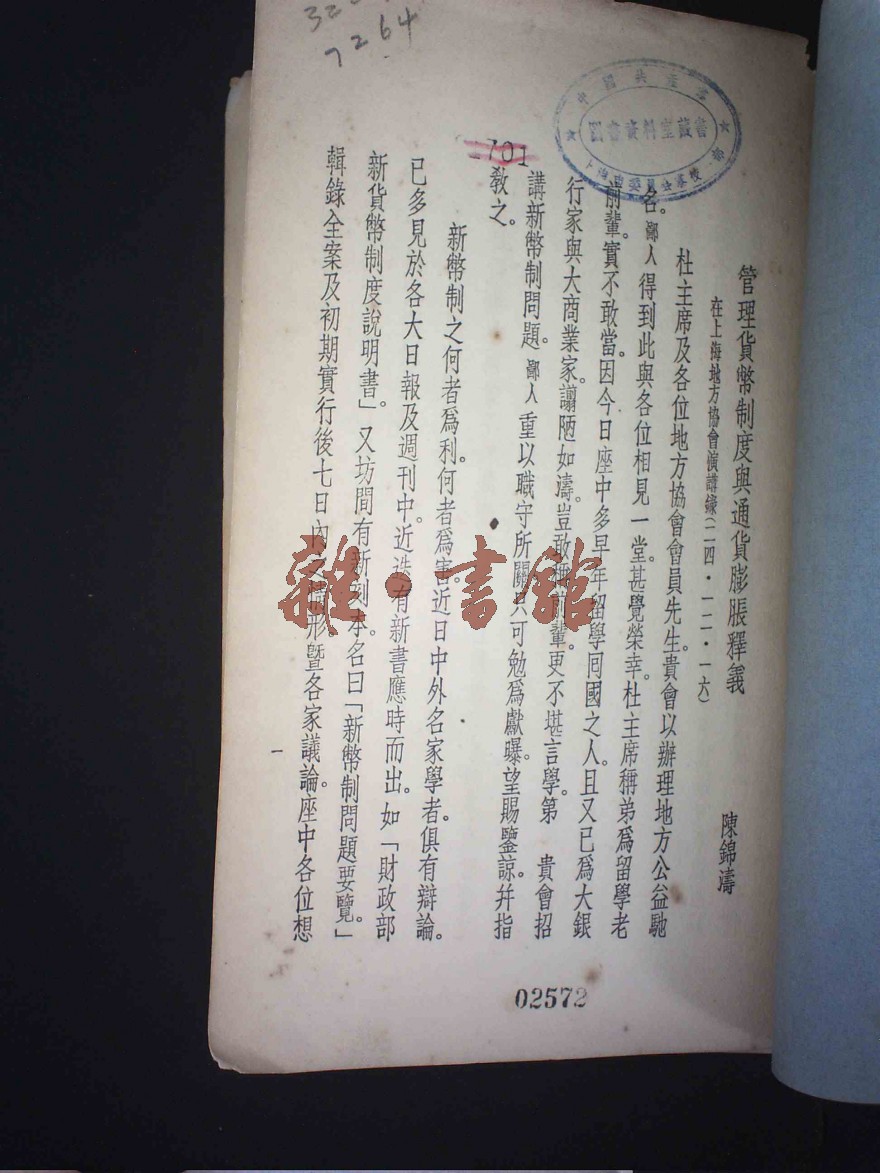 管理貨幣制度與通貨膨脹釋義
在上海地方協會演講錄(二四・一二・一六)
陳錦濤
杜主席及各位地方協會會員先生。貴會以辦理地方公益馳
名。鄙人得到此與各位相見一堂。甚覺榮幸。杜主席稱弟爲留學老
前輩。實不敢當。因今日座中多早年留學囘國之人。且又已爲大銀
行家與大商業家。譾陋如濤。豈敢 輩。更不堪言學。第 貴會招
講新幣制問題。鄙人重以職守所關。只可勉爲獻曝。望賜鑒諒。幷指
敎之。
新幣制之何者爲利。何者爲害。近日中外名家學者。俱有辯論。
已多見於各大日報及週刊中。近迭有新書應時而出。如「財政部
新貨幣制度說明書」又坊間有新刻本。名曰「新幣制問題要覽。」
輯錄全案及初期實行後七日內之情形曁各家議論。座中各位想
一
02572
701
7264
中國共產黨
圖書資料室藏書
上海市委員會黨校
雜・書館